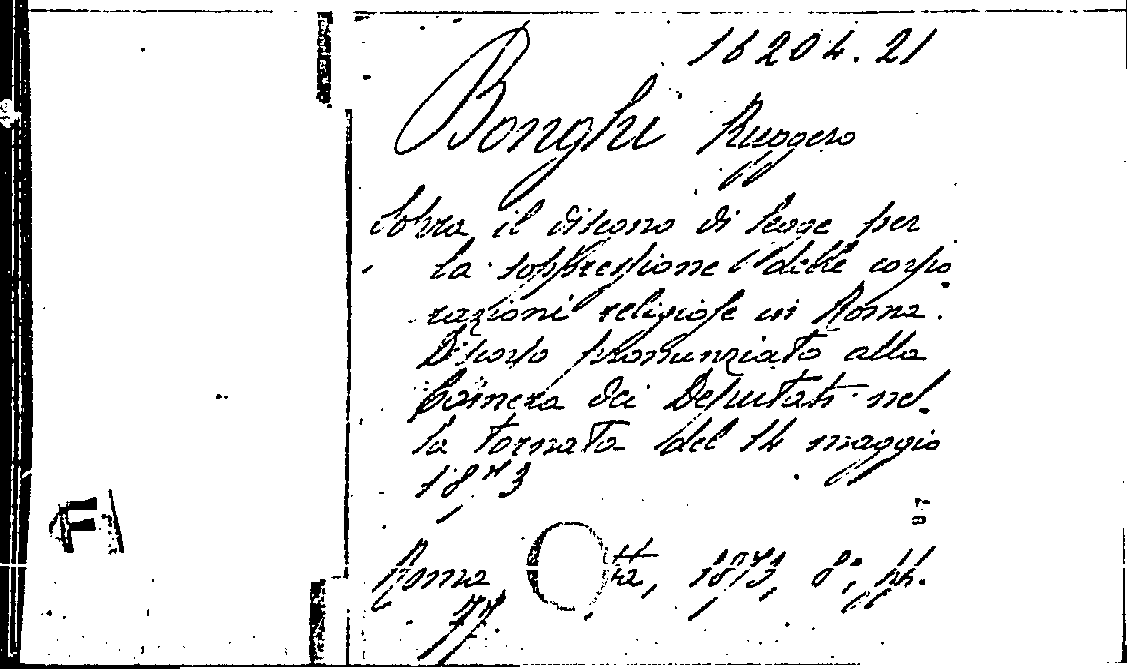 16204.21
Bonghi Ruggero
Sopra il disegno di legge per
la soppressione delle corpo
razioni religiose in Roma.
Discorso pronunziato alla
Camera dei Deputati nel
la tornata del 14 maggio
1873
Roma tta, 1873, 8°, pp.
77.